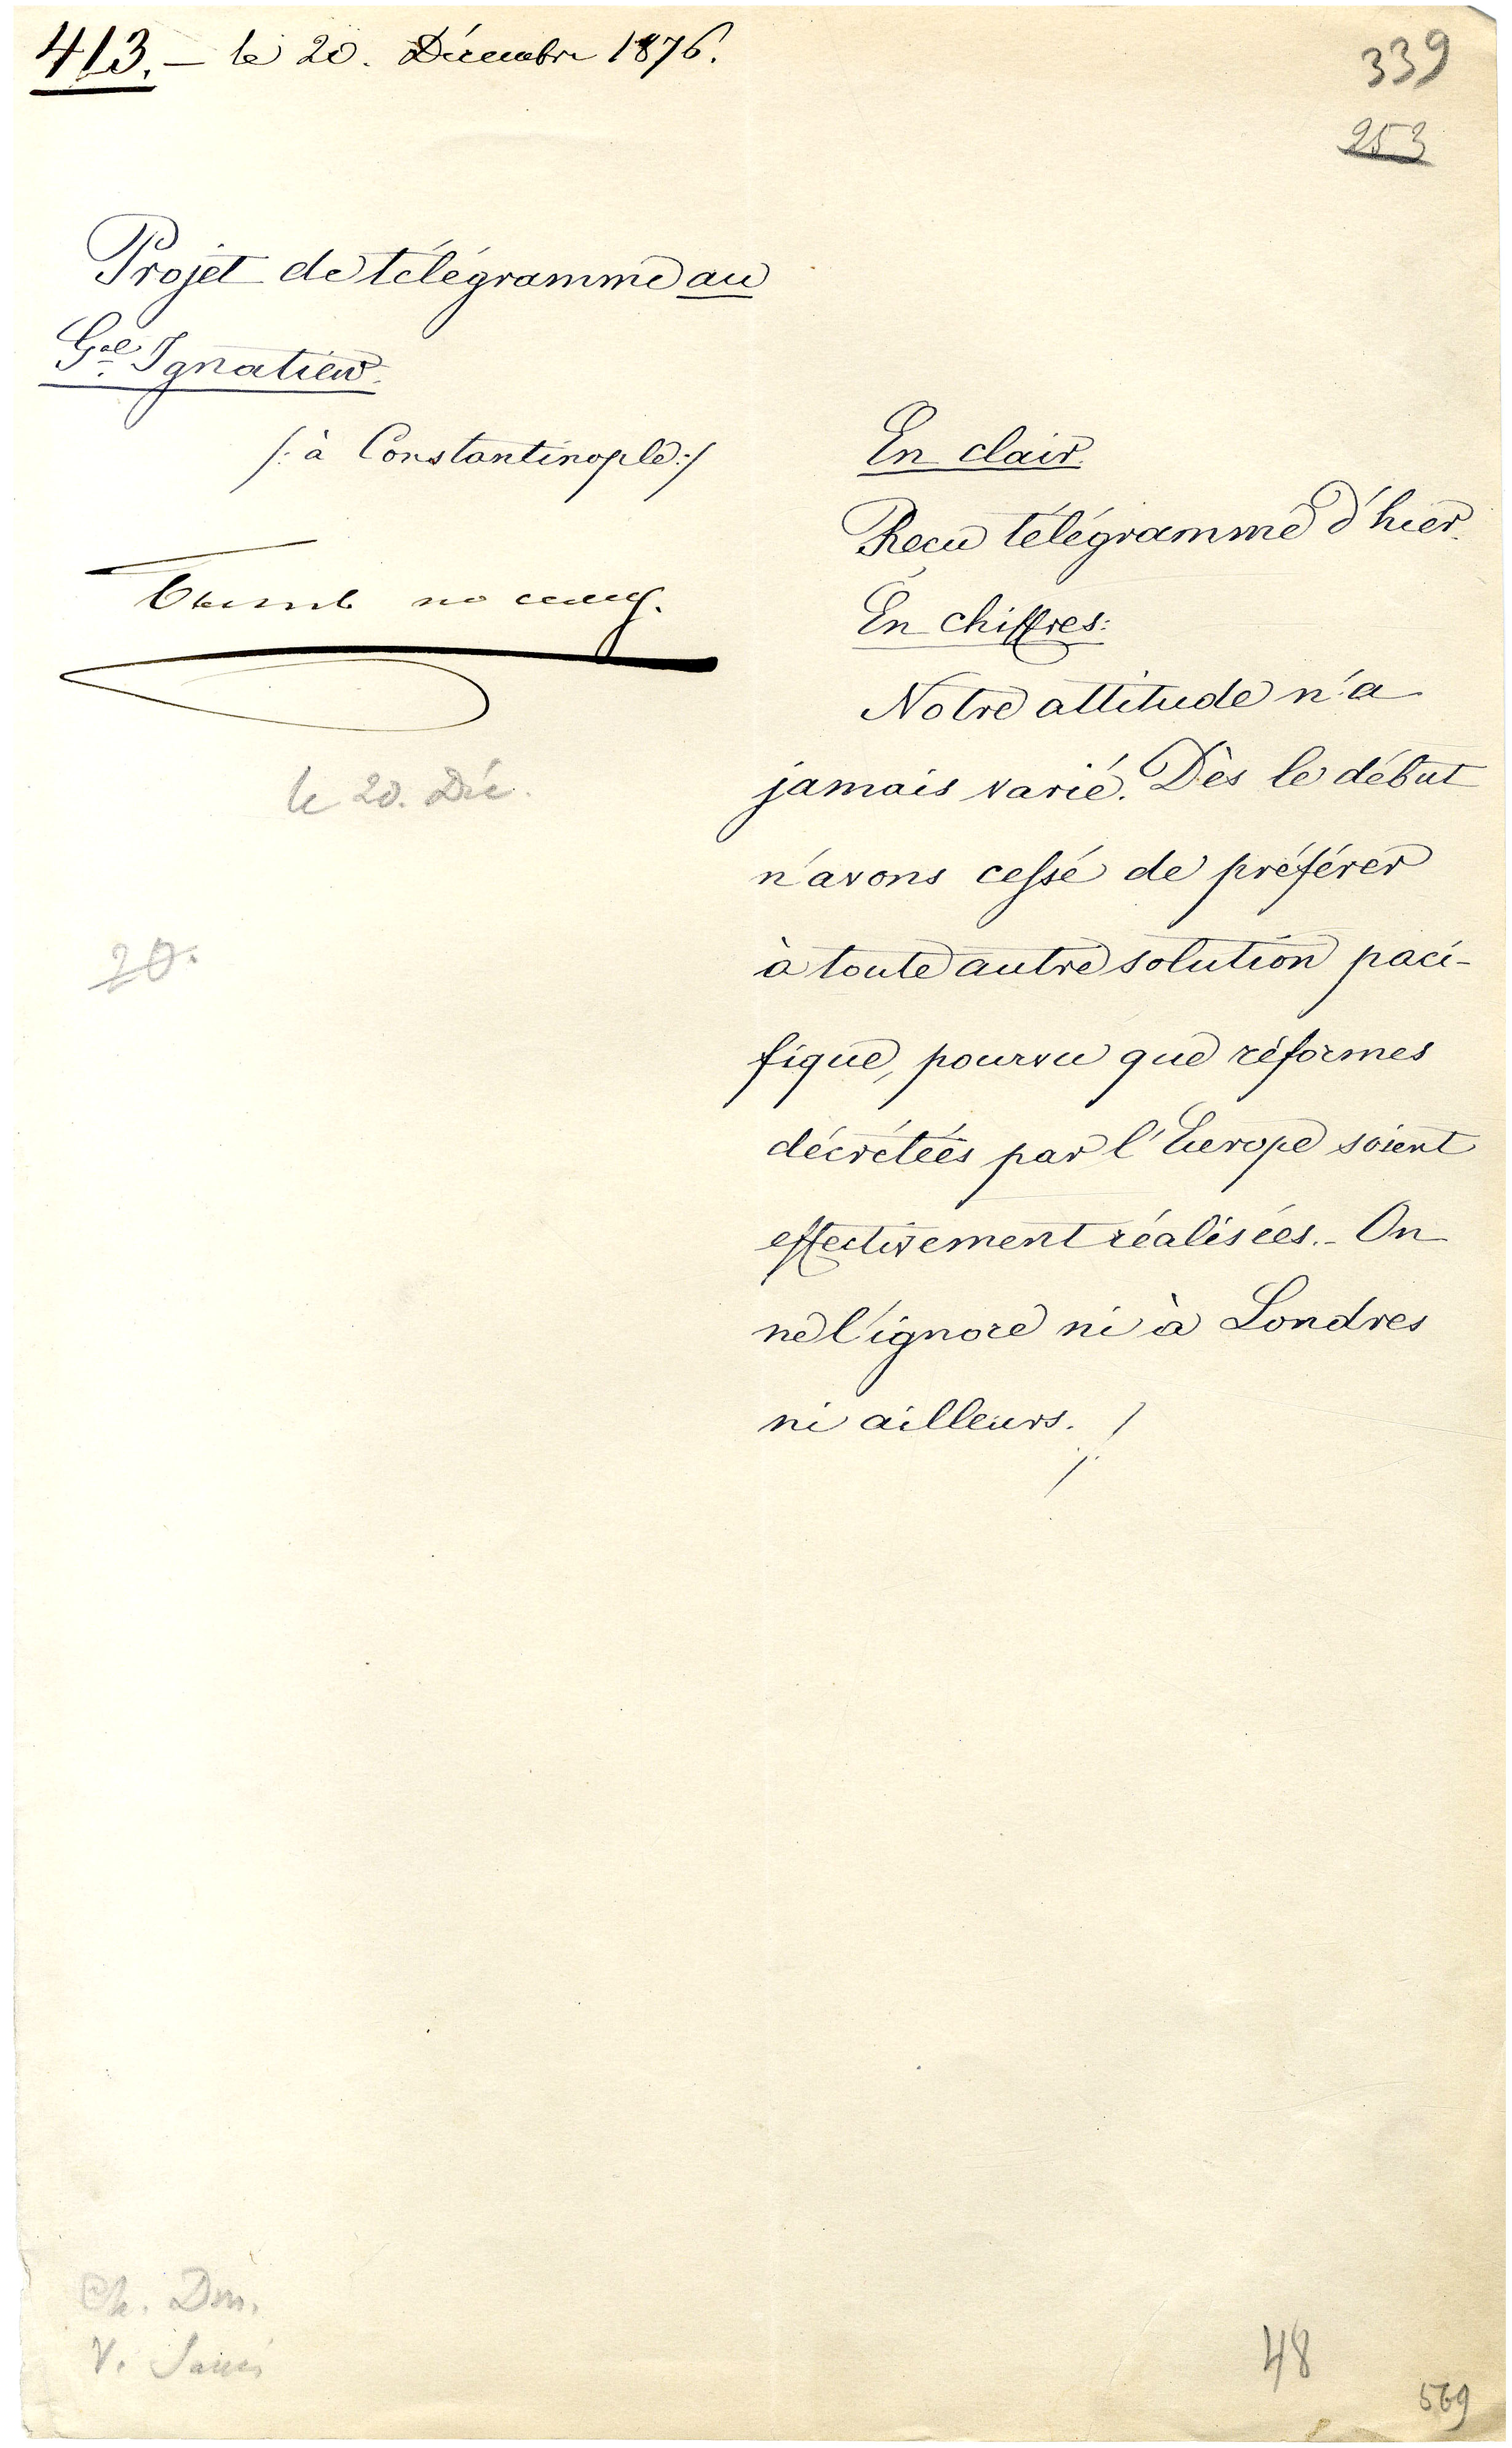 413. – le 20. Décembre 1876.
339
253
Projet de télégramme au
Gal Ignatiew.
/: à Constantinople :/
le 20. Déc.
20.
En clair.
Reçu télégramme d'hier.
En chiffres:
Notre attitude n'a
jamais varié. Dès le début
n'avons cessé de préférer
à toute autre solution paci-
fique, pourvu que réformes
décrétées par l'Europe soient
effectivement réalisées. – On
ne l'ignore ni à Londres
ni ailleurs. /.
48
569